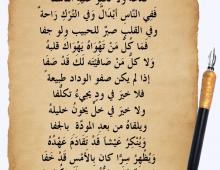 ففي النّاسِ أبْدَالٌ وَفي التّرْكِ رَاحة ٌ
وَفي القلبِ صبرٌ للحبيب ولو جفا
فمَا كلُّ مَنْ تَهْوَاهُ يَهْوَاكَ قلبهُ
وَلا كلُّ مَنْ صَافيْتَه لَكَ قَدْ صَفَا
إذا لم يكن صفو الوداد طبيعة ً
فلا خيرَ في ودٍ يجيءُ تكلُّفا
ولا خيرَ في خلٍّ يخونُ خليلهُ
ويلقاهُ من بعدِ المودَّة ِ بالجفا
وَيُنْكِرُ عَيْشاً قَدْ تَقَادَمَ عَهْدُهُ
وَيُظْهِرُ سِرًّا كان بالأَمْسِ قَدْ خَفَا